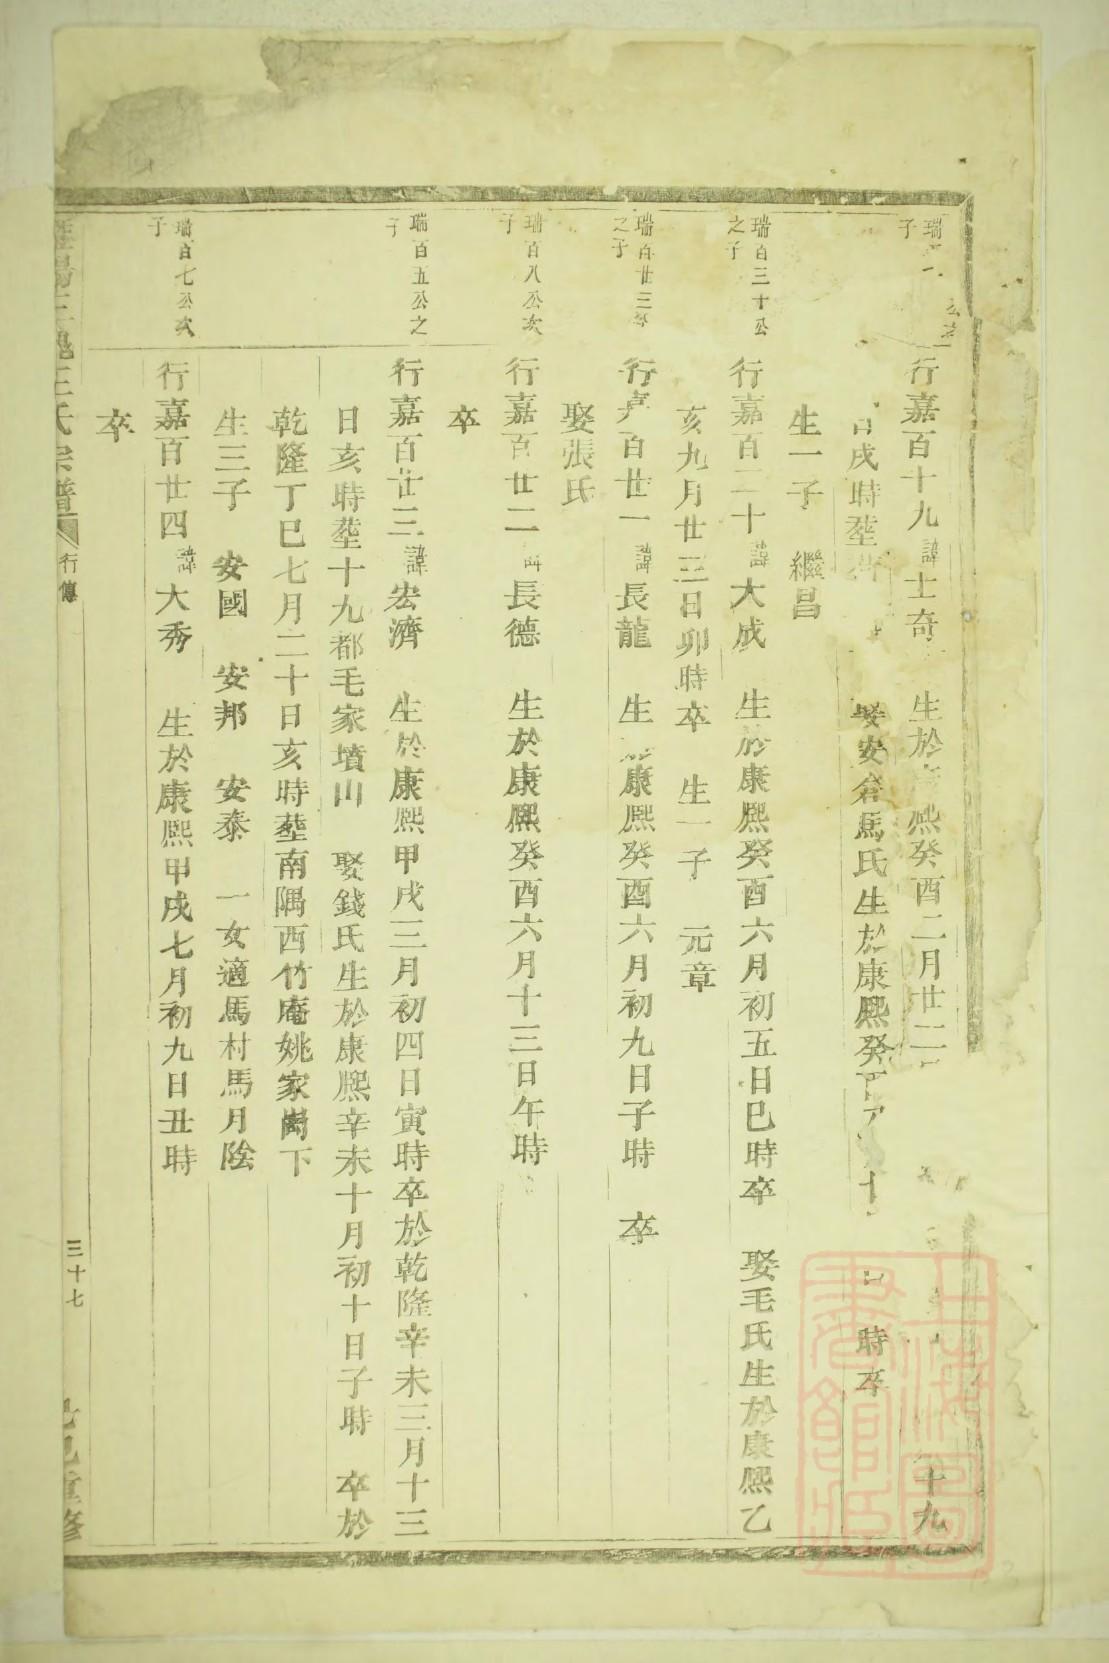 瑞
子
行嘉百十九諱士奇 生於 熙癸酉二月廿二 十九
日戌時塟 娶安倉馬氏生於康熙癸 十 時卒
生一子 繼昌
瑞百三十公
之子
行嘉百二十諱大成 生於康熙癸酉六月初五日巳時卒 娶毛氏生於康熙乙
亥九月廿三日卯時卒 生一子 元章
瑞百廿三
之子
行 百廿一諱長龍 生 康熙癸酉六月初九日子時 卒
娶張氏
瑞百八公次
子
行嘉百廿二 長德 生於康熙癸酉六月十三日午時
卒
瑞百五公之
子
行嘉百廿三諱宏濟 生於康熙甲戌三月初四日寅時卒於乾隆辛未三月十三
日亥時塟十九都毛家墳山 娶錢氏生於康熙辛未十月初十日子時 卒於
乾隆丁巳七月二十日亥時塟南隅西竹庵姚家 下
生三子 安國 安邦 安泰 一女適馬村馬月陰
瑞百七公次
子
行嘉百廿四諱大秀 生於康熙甲戌七月初九日丑時
卒
王氏宗譜 行傳 三十七 重修
上海圖書館藏